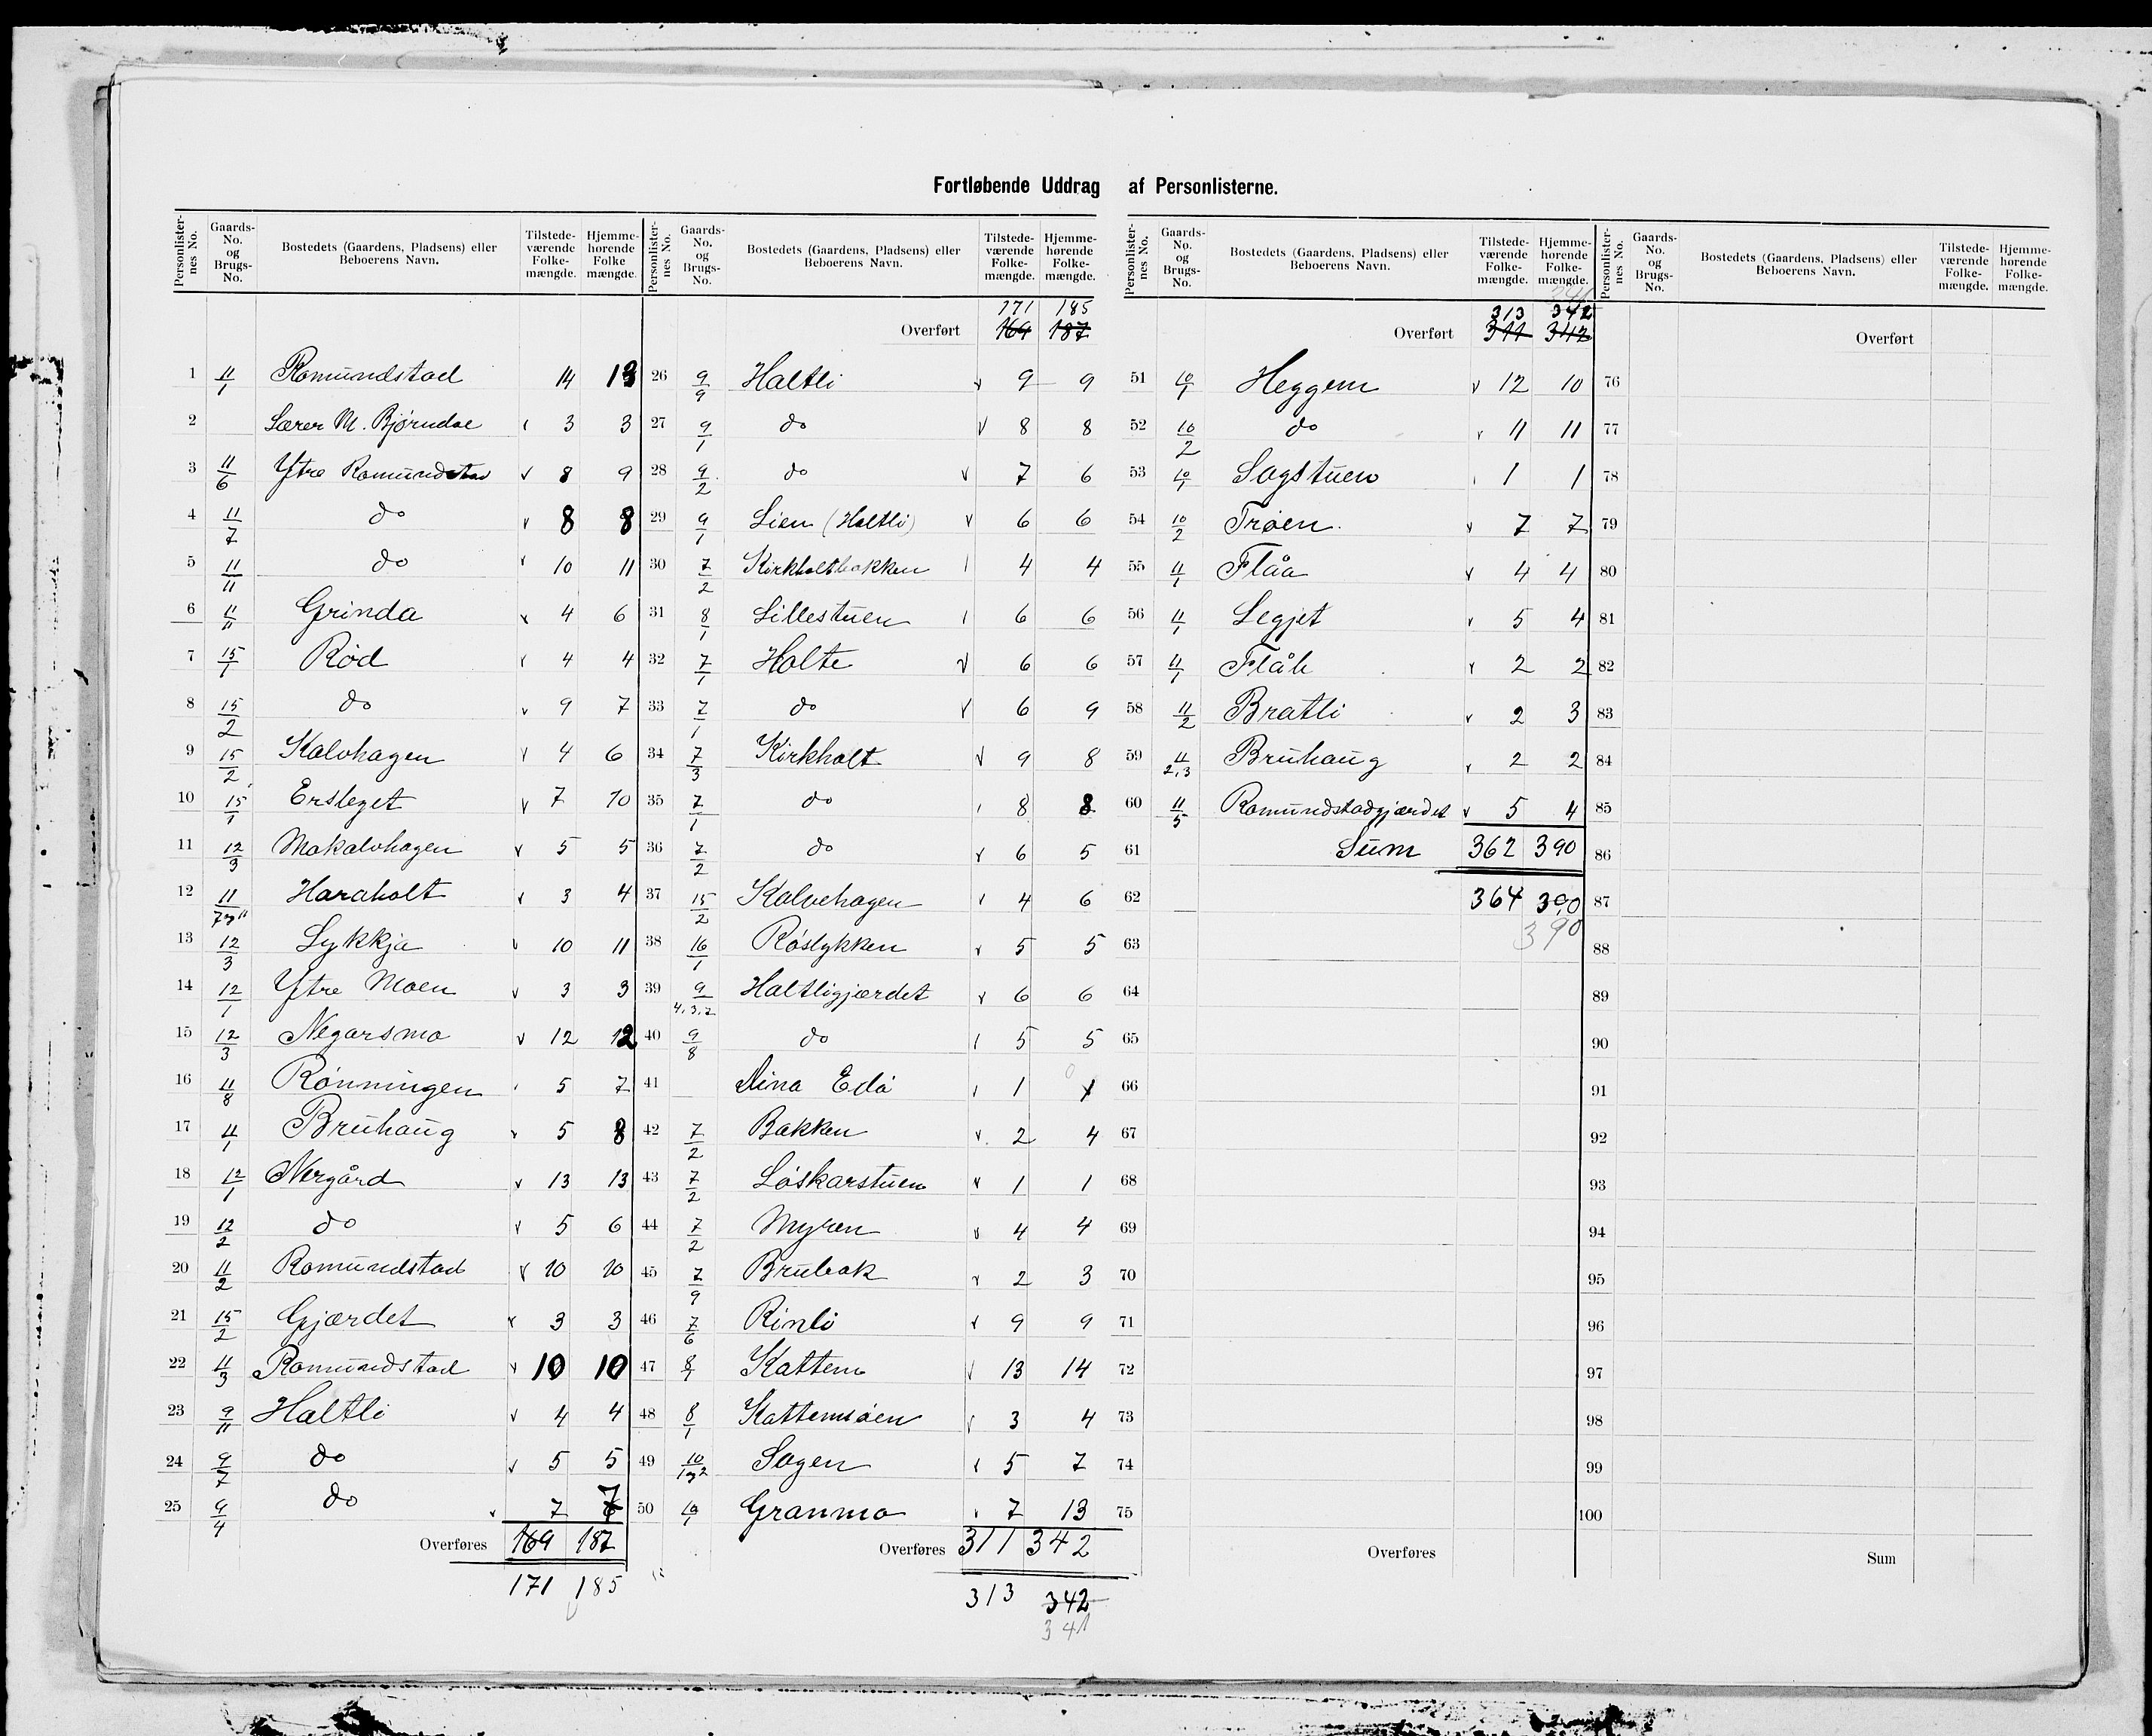 Fortløbende Uddrag af Personlisterne.
Personlister-nes No. | Gaards-No. og Brugs-No. | Bostedets (Gaardens, Pladsens) eller Beboerens Navn. | Tilstede-værende Folke-mængde. | Hjemme-hørende Folke mængde.
1 11/1 Romundstad 14 13
2 Lærer M. Bjørndal 3 3
3 11/6 Ytre Romundstad 8 9
4 11/7 do 8 8
5 11/11 do 10 11
6 11/11 Grinda 4 6
7 15/1 Rød 4 4
8 15/2 do 9 7
9 15/2 Kalvhagen 4 6
10 15/1 Ersleget 7 10
11 12/3 Mokalvhagen 5 5
12 11/7og11 Haraholt 3 4
13 12/3 Lykkja 10 11
14 12/1 Ytre Moen 3 3
15 12/3 Negarsmo 12 12
16 11/8 Rønningen 5 7
17 11/1 Bruhaug 5 8
18 12/1 Nergård 13 13
19 12/2 do 5 6
20 11/2 Romundstad 10 10
21 15/2 Gjærdet 3 3
22 11/3 Romundstad 10 10
23 9/11 Haltli 4 4
24 9/7 do 5 5
25 9/4 do 7 7
Overføres 169 187
171 185
Personlister-nes No. | Gaards-No. og Brugs-No. | Bostedets (Gaardens, Pladsens) eller Beboerens Navn. | Tilstede-værende Folke-mængde. | Hjemme-hørende Folke-mængde.
171 185
Overført 169 187
26 9/9 Haltli 9 9
27 9/1 do 8 8
28 9/2 do 7 6
29 9/1 Lien (Haltli) 6 6
30 7/2 Kirkholtbakken 4 4
31 8/1 Lillestuen 6 6
32 7/1 Holte 6 6
33 7/1 do 6 9
34 7/3 Kirkholt 9 8
35 7/1 do 8 8
36 7/2 do 6 5
37 15/2 Kalvehagen 4 6
38 16/1 Røslykken 5 5
39 9/4,3,2 Haltligjærdet 6 6
40 9/8 do 5 5
41 Lina Edø 1 1 0
42 7/2 Bakken 2 4
43 7/2 Løskarstuen 1 1
44 7/2 Myren 4 4
45 7/9 Brubak 2 3
46 7/6 Rinli 9 9
47 8/1 Kattem 13 14
48 8/1 Kattemsøen 3 4
49 10/1og2 Sogen 5 7
50 10/1 Granmo 7 13
Overføres 311 342
313 342
341
Personlister-nes No. | Gaards-No. og Brugs-No. | Bostedets (Gaardens, Pladsens) eller Beboerens Navn. | Tilstede-værende Folke-mængde. | Hjemme-hørende Folke-mængde.
341
313 342
Overført 311 342
51 10/1 Heggem 12 10
52 10/2 do 11 11
53 10/1 Sogstuen 1 1
54 10/2 Trøen 7 7
55 11/1 Flåa 4 4
56 11/1 Legjet 5 4
57 11/1 Flåh 2 2
58 11/2 Bratli 2 3
59 11/2,3 Bruhaug 2 2
60 11/5 Romundstadgjærdet 5 4
61 Sum 362 390
62 364 390
63 390
64
65
66
67
68
69
70
71
72
73
74
75
Overføres
Personlister-nes No. | Gaards-No. og Brugs-No. | Bostedets (Gaardens, Pladsens) eller Beboerens Navn. | Tilstede-værende Folke-mængde. | Hjemme-hørende Folke-mængde.
Overført
76
77
78
79
80
81
82
83
84
85
86
87
88
89
90
91
92
93
94
95
96
97
98
99
100
Sum